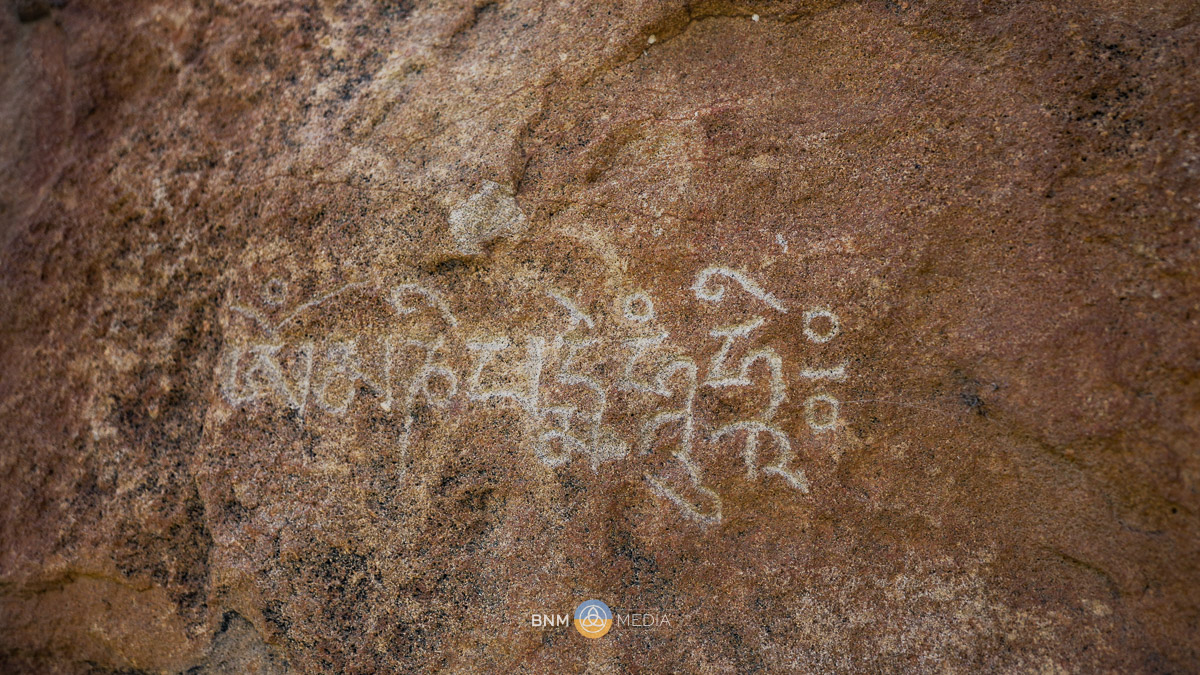 ཨོཾ་མ་ཎི་པདྨེ་ཧཱུྃ་ཧྲཱི༔
BNM MEDIA